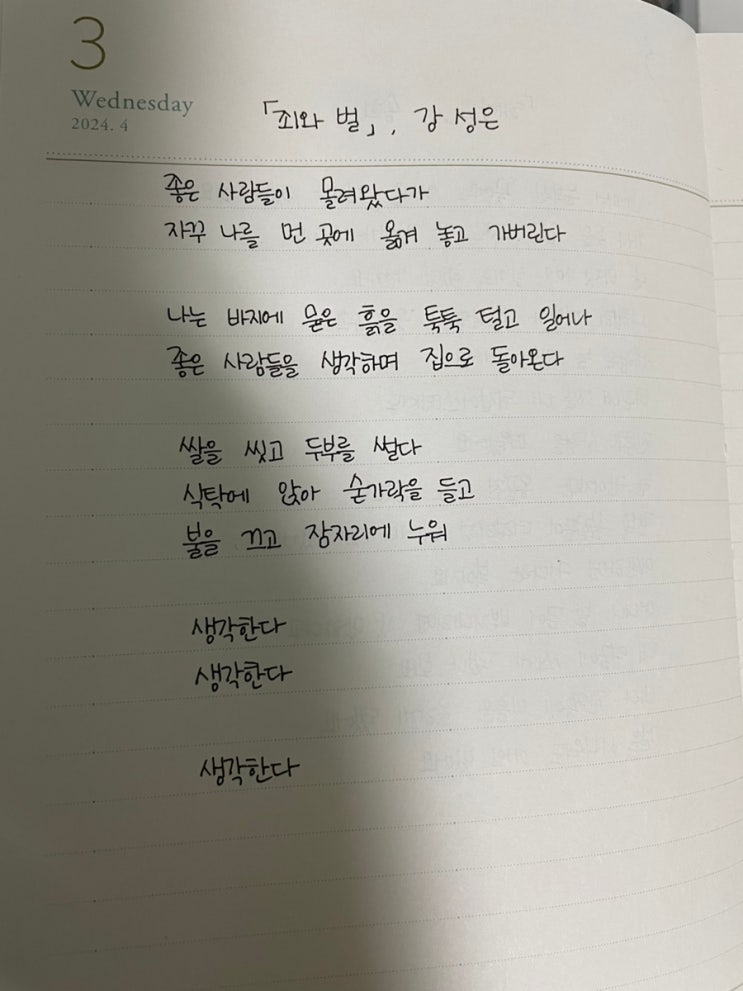 3
Wednesday
2024. 4
「죄와 벌」, 강성은
좋은 사람들이 몰려왔다가
자꾸 나를 먼 곳에 옮겨 놓고 가버린다
나는 바지에 묻은 흙을 툭툭 털고 일어나
좋은 사람들을 생각하며 집으로 돌아온다
쌀을 씻고 두부를 썬다
식탁에 앉아 숟가락을 들고
불을 끄고 잠자리에 누워
생각한다
생각한다
생각한다